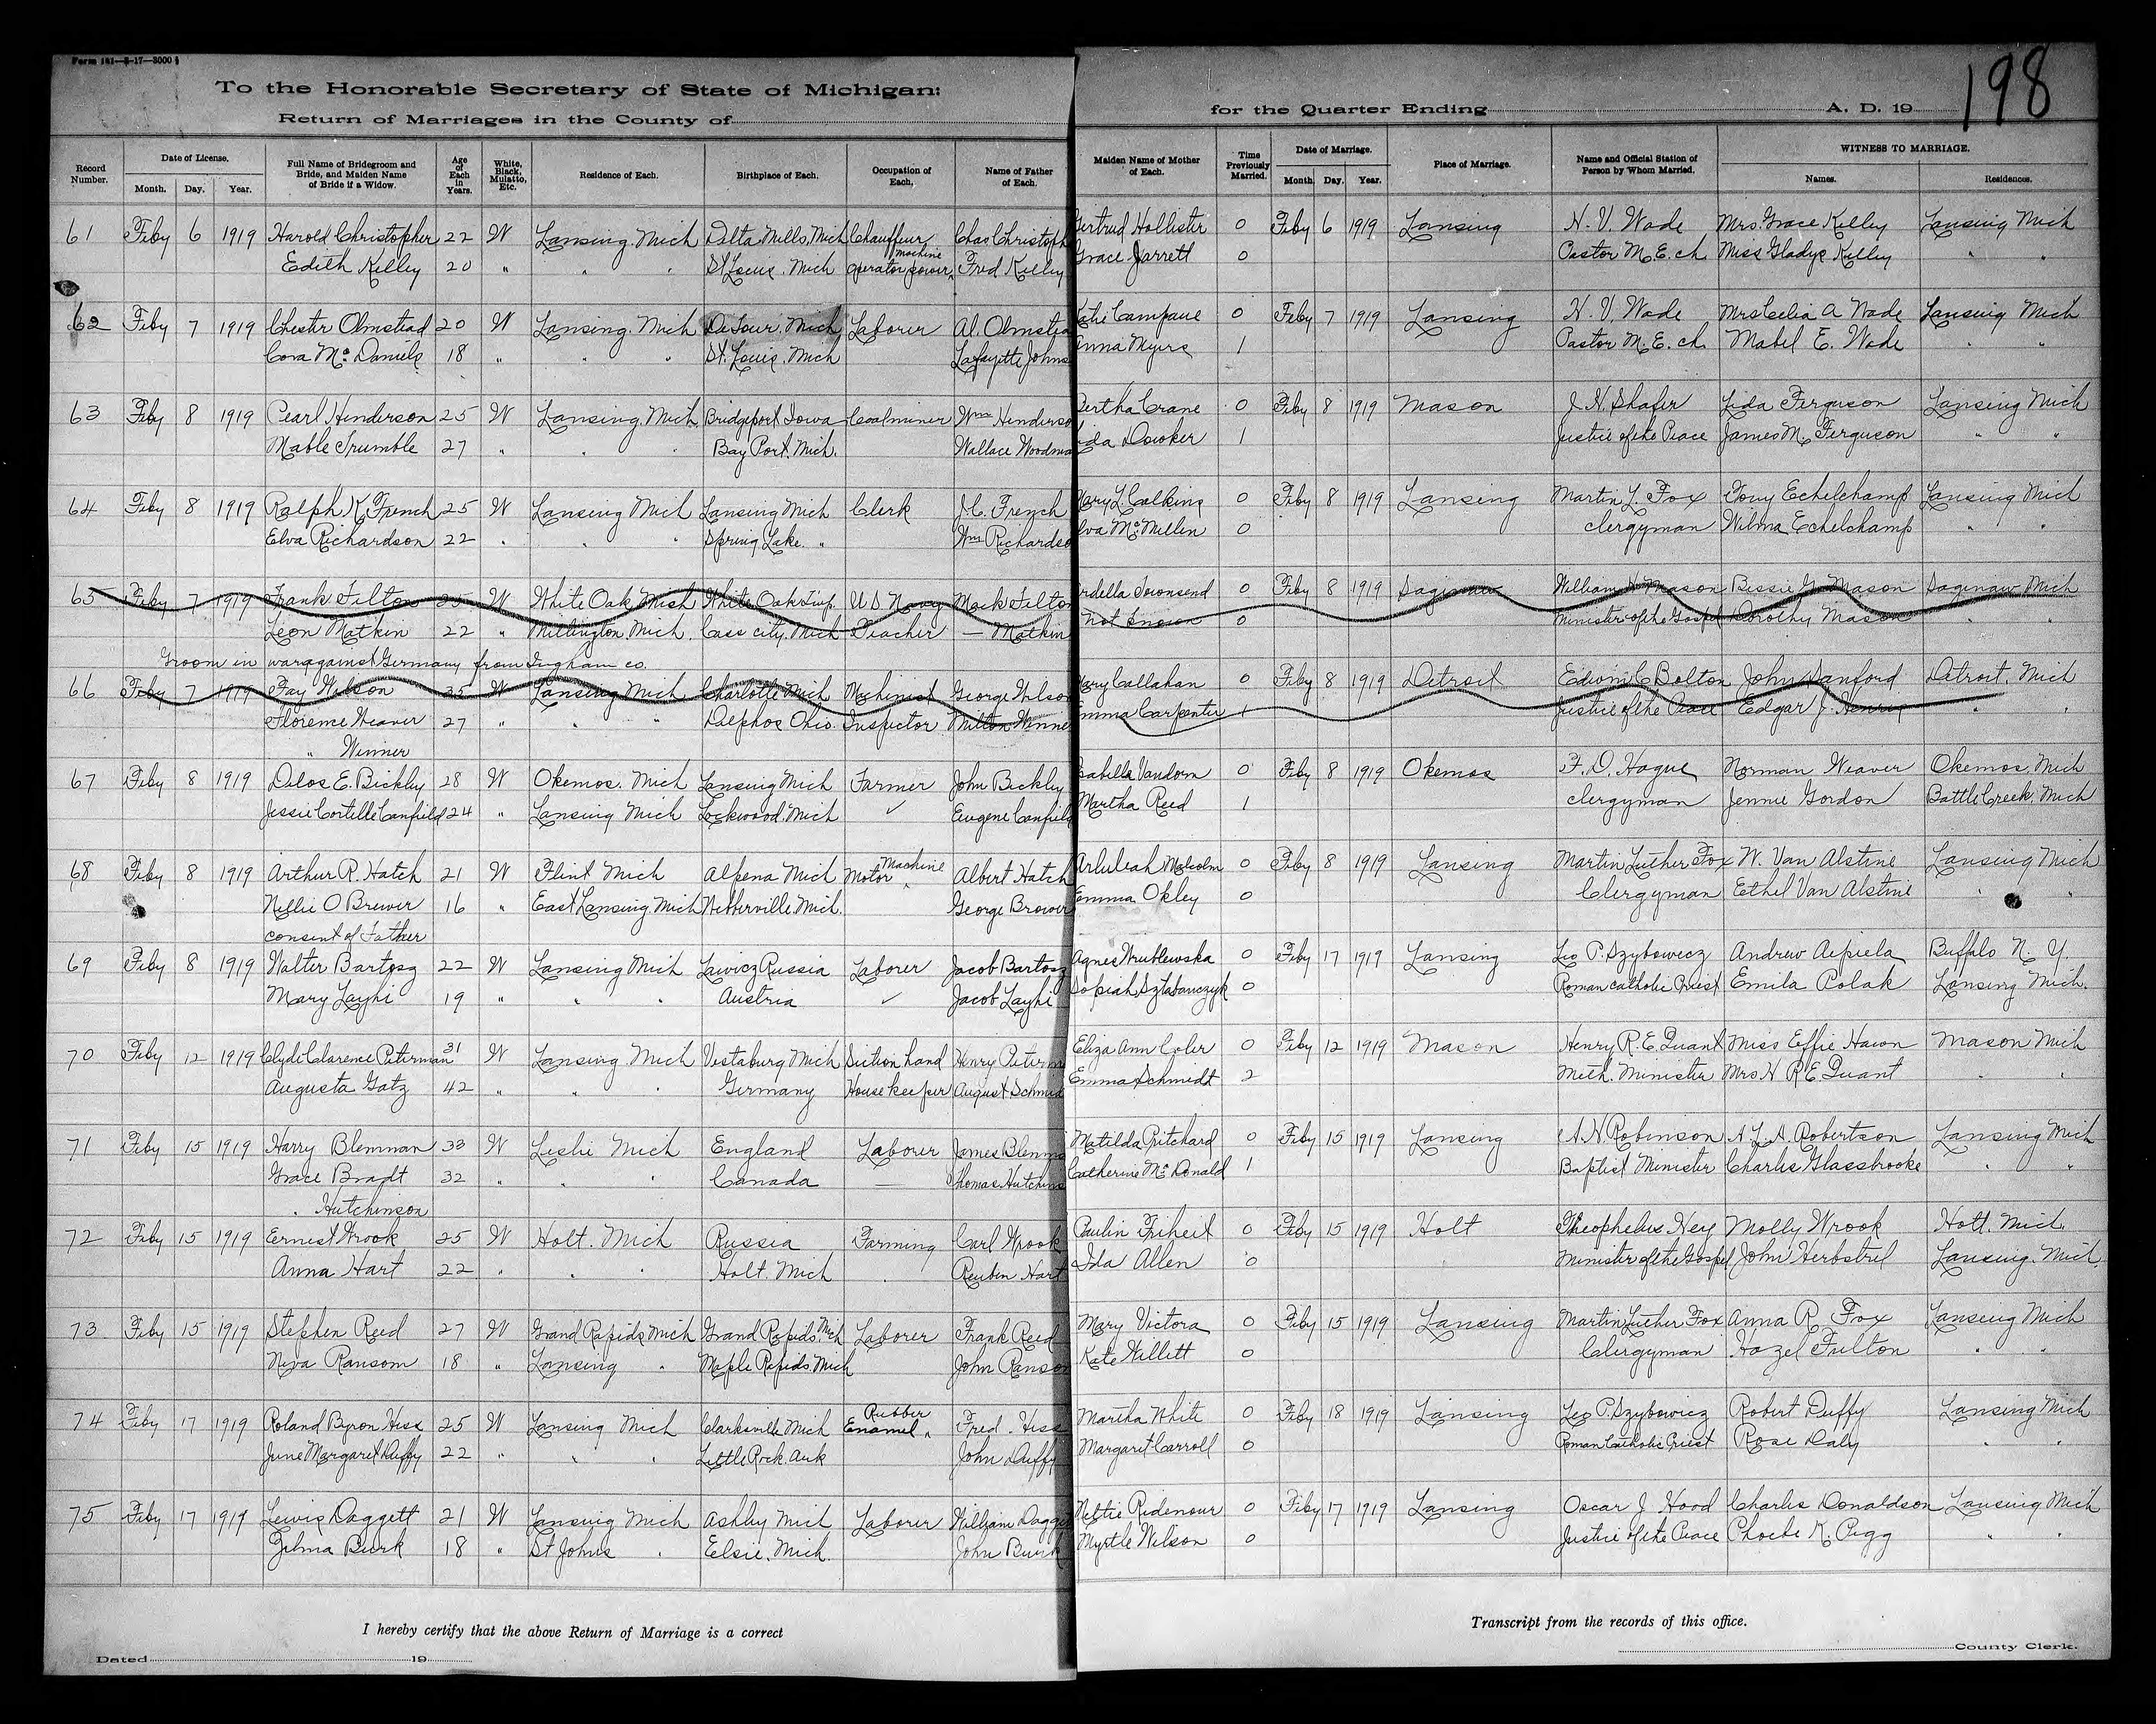 Form 141—8-17—3000
198
To the Honorable Secretary of State of Michigan:
Return of Marriages in the County of
for the Quarter Ending A. D. 19
Record Number. Date of License. Month. Day. Year. Full Name of Bridegroom and Bride, and Maiden Name of Bride if a Widow. Age of Each in Years. White, Black, Mulatto, Etc. Residence of Each. Birthplace of Each. Occupation of Each. Name of Father of Each. Maiden Name of Mother of Each. Time Previously Married. Date of Marriage. Month. Day. Year. Place of Marriage. Name and Official Station of Person by Whom Married. WITNESS TO MARRIAGE. Names. Residences.
61 Feby 6 1919 Harold Christopher 22 W Lansing Mich Delta Mills, Mich Chauffeur Chas Christoph Gertrud Hollister 0 Feby 6 1919 Lansing N. V. Wade Mrs. Grace Kelley Lansing Mich
Edith Kelley 20 " " " St Louis Mich operator power machine Fred Kelley Grace Jarrett 0 Pastor M. E. ch Miss Gladys Kelley " "
62 Feby 7 1919 Chester Olmstead 20 W Lansing Mich DeTour, Mich Laborer Al. Olmstea Katie Campaue 0 Feby 7 1919 Lansing N. V. Wade Mrs Celia A Wade Lansing Mich
Cora McDaniels 18 " " " St. Louis, Mich Lafayette Johns Anna Myers 1 Pastor M. E. ch Mabel E. Wade " "
63 Feby 8 1919 Pearl Henderson 25 W Lansing Mich Bridgeport Iowa Coalminer Wm Henderso Bertha Crane 0 Feby 8 1919 Mason J. H. Shafer Lida Ferguson Lansing Mich
Mable Trumble 27 " " " Bay Port, Mich. Wallace Woodma Lida Dowker 1 Justice of the Peace James M. Ferguson " "
64 Feby 8 1919 Ralph K French 25 W Lansing Mich Lansing Mich Clerk J. C. French Mary L. Calkins 0 Feby 8 1919 Lansing Martin L. Fox Tony Echelchamp Lansing Mich
Elva Richardson 22 " " " Spring Lake " Wm Richardso Elva McMillen 0 clergyman Wilma Echelchamp " "
65 Feby 7 1919 Frank Felton 25 W White Oak, Mich White Oak Twp. U S Navy Mark Felton Ardella Townsend 0 Feby 8 1919 Saginaw William H. Mason Bessie G. Mason Saginaw Mich
Leon Matkin 22 " Millington, Mich. Cass city, Mich Teacher — Matkin Not Known 0 Minister of the Gospel Dorothy Mason " "
Groom in war against Germany from Ingham co.
66 Feby 7 1919 Fay Wilson 35 W Lansing Mich Charlotte Mich Machinist George Wilson Mary Callahan 0 Feby 8 1919 Detroit Edwin C Bolton John Sanford Detroit, Mich
Florence Weaver 27 " " " Delphos Ohio Inspector Milton Winne Emma Carpenter 1 Justice of the Peace Edgar J. Henry " "
" Winner
67 Feby 8 1919 Delos E. Bickley 28 W Okemos, Mich Lansing Mich Farmer John Bickley Isabella Vandorn 0 Feby 8 1919 Okemos F. D. Hague Norman Weaver Okemos, Mich
Jessie Cortelle Canfield 24 " Lansing Mich Lockwood, Mich ✓ Eugene Canfield Martha Reed 1 clergyman Jennie Gordon Battle Creek, Mich
68 Feby 8 1919 Arthur R. Hatch 21 W Flint Mich Alpena Mich Motor Machine Albert Hatch Malcolm 0 Feby 8 1919 Lansing Martin Luther Fox W. Van Alstine Lansing Mich
Nellie O Brewer 16 " East Lansing Mich Webberville Mich. George Brower Emma Okley 0 Clergyman Ethel Van Alstine " "
consent of Father
69 Feby 8 1919 Walter Bartosz 22 W Lansing Mich Russia Laborer Jacob Bartosz Agnes Wrublewska 0 Feby 17 1919 Lansing Leo P. Szybowicz Andrew Buffalo N. Y.
Mary Layhi 19 " " " Austria ✓ Jacob Layhi 0 Roman catholic Priest Emila Polak Lansing Mich.
70 Feby 12 1919 Clyde Clarence Peterman 31 W Lansing Mich Vestaburg Mich Section hand Henry Peterm Eliza Ann Coler 0 Feby 12 1919 Mason Henry R. E. Quant Miss Effie Hawn Mason Mich
Augusta Gotz 42 " " " Germany House keeper August Schmid Emma Schmidt 2 Meth. Minister Mrs H R E Quant " "
71 Feby 15 1919 Harry Blemnan 33 W Leslie Mich England Laborer James Matilda Pritchard 0 Feby 15 1919 Lansing A. N Robinson A. L. A. Robertson Lansing Mich
Grace Bradt 32 " " " Canada — Thomas Hutchins Catherine McDonald 1 Baptist Minister Charles Glassbrooke " "
" Hutchinson
72 Feby 15 1919 Ernest Wrook 25 W Holt. Mich Russia Farming Carl Wrook Paulin Friheit 0 Feby 15 1919 Holt Theophelus Hey Molly Wrook Holt. Mich
Anna Hart 22 " " " Holt. Mich Reuben Hart Ida Allen 0 Minister of the Gospel John Herbstrel Lansing. Mich.
73 Feby 15 1919 Stephen Reed 27 W Grand Rapids Mich Grand Rapids, Mich Laborer Frank Reed Mary Victora 0 Feby 15 1919 Lansing Martin Luther Fox Anna R Fox Lansing Mich
Neva Ransom 18 " Lansing " Maple Rapids, Mich John Ranson Kate Willett 0 Clergyman Hazel Fulton " "
74 Feby 17 1919 Roland Byron Hess 25 W Lansing Mich Clarksville Mich Rubber Enamel Fred. Hess Martha White 0 Feby 18 1919 Lansing Leo P. Szybowicz Robert Duffy Lansing Mich
June Margaret Duffy 22 " " " Little Rock. Ark John Duffy Margaret Carroll 0 Roman Catholic Priest Rose Daly " "
75 Feby 17 1919 Lewis Daggett 21 W Lansing Mich Ashley Mich Laborer William Dagge Nettie Ridenour 0 Feby 17 1919 Lansing Oscar J Hood Charles Donaldson Lansing Mich
Zelma Burk 18 " St Johns " Elsie, Mich. John Burk Myrtle Wilson 0 Justice of the Peace Phoebe K. Pigg " "
I hereby certify that the above Return of Marriage is a correct
Transcript from the records of this office.
Dated 19
County Clerk.